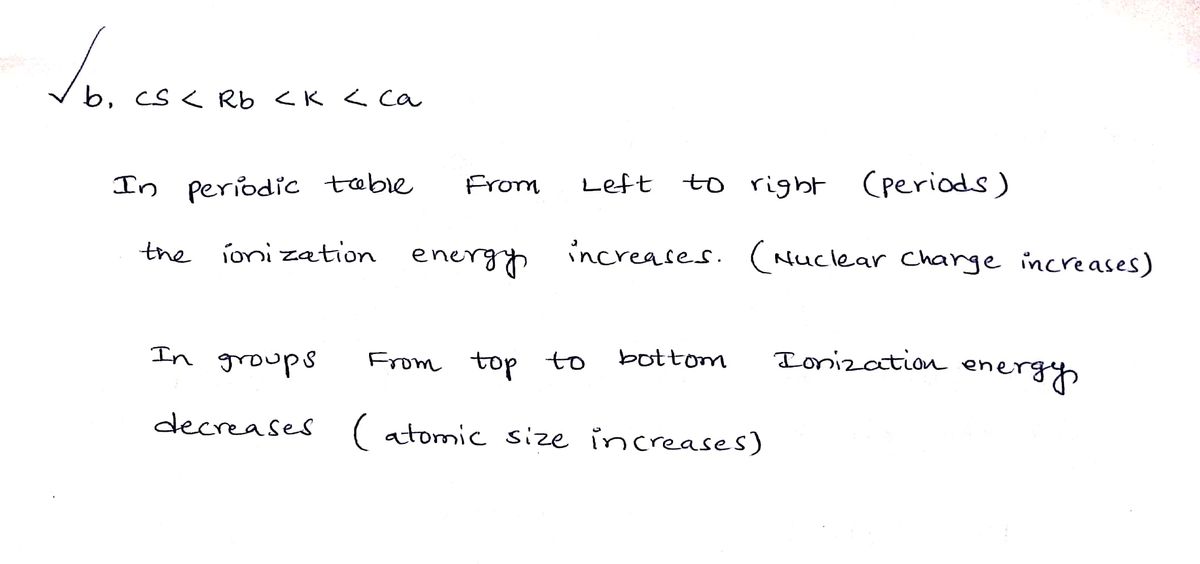 b, CS < Rb < K < Ca
In periodic table From Left to right (periods)
the ionization energy increases. (Nuclear charge increases)
In groups From top to bottom Ionization energy
decreases (atomic size increases)